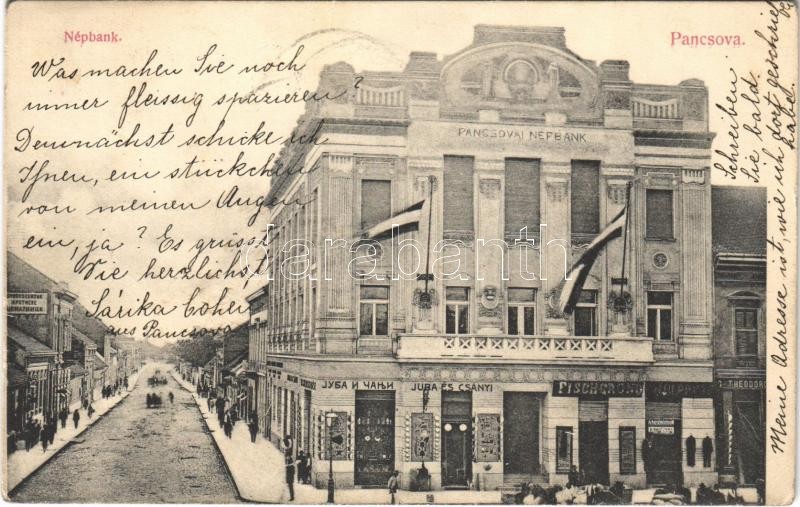 Népbank.
Pancsova.
Was machen Sie noch
immer fleissig spazieren?
Demnächst schicke ich
Ihnen, ein stückchen
von meinen Augen
ein, ja? Es grüsst
Sie herzlichst,
Sárika Cohen
aus Pancsova
Schreiben
Sie bald.
Meine Adresse ist, wie ich dort geschrie
habe.
PANCSOVAI NÉPBANK
ЈУБА И ЧАЊИ
JUBA ÉS CSÁNYI
FISCHGRUND
THEODOR
darabanth